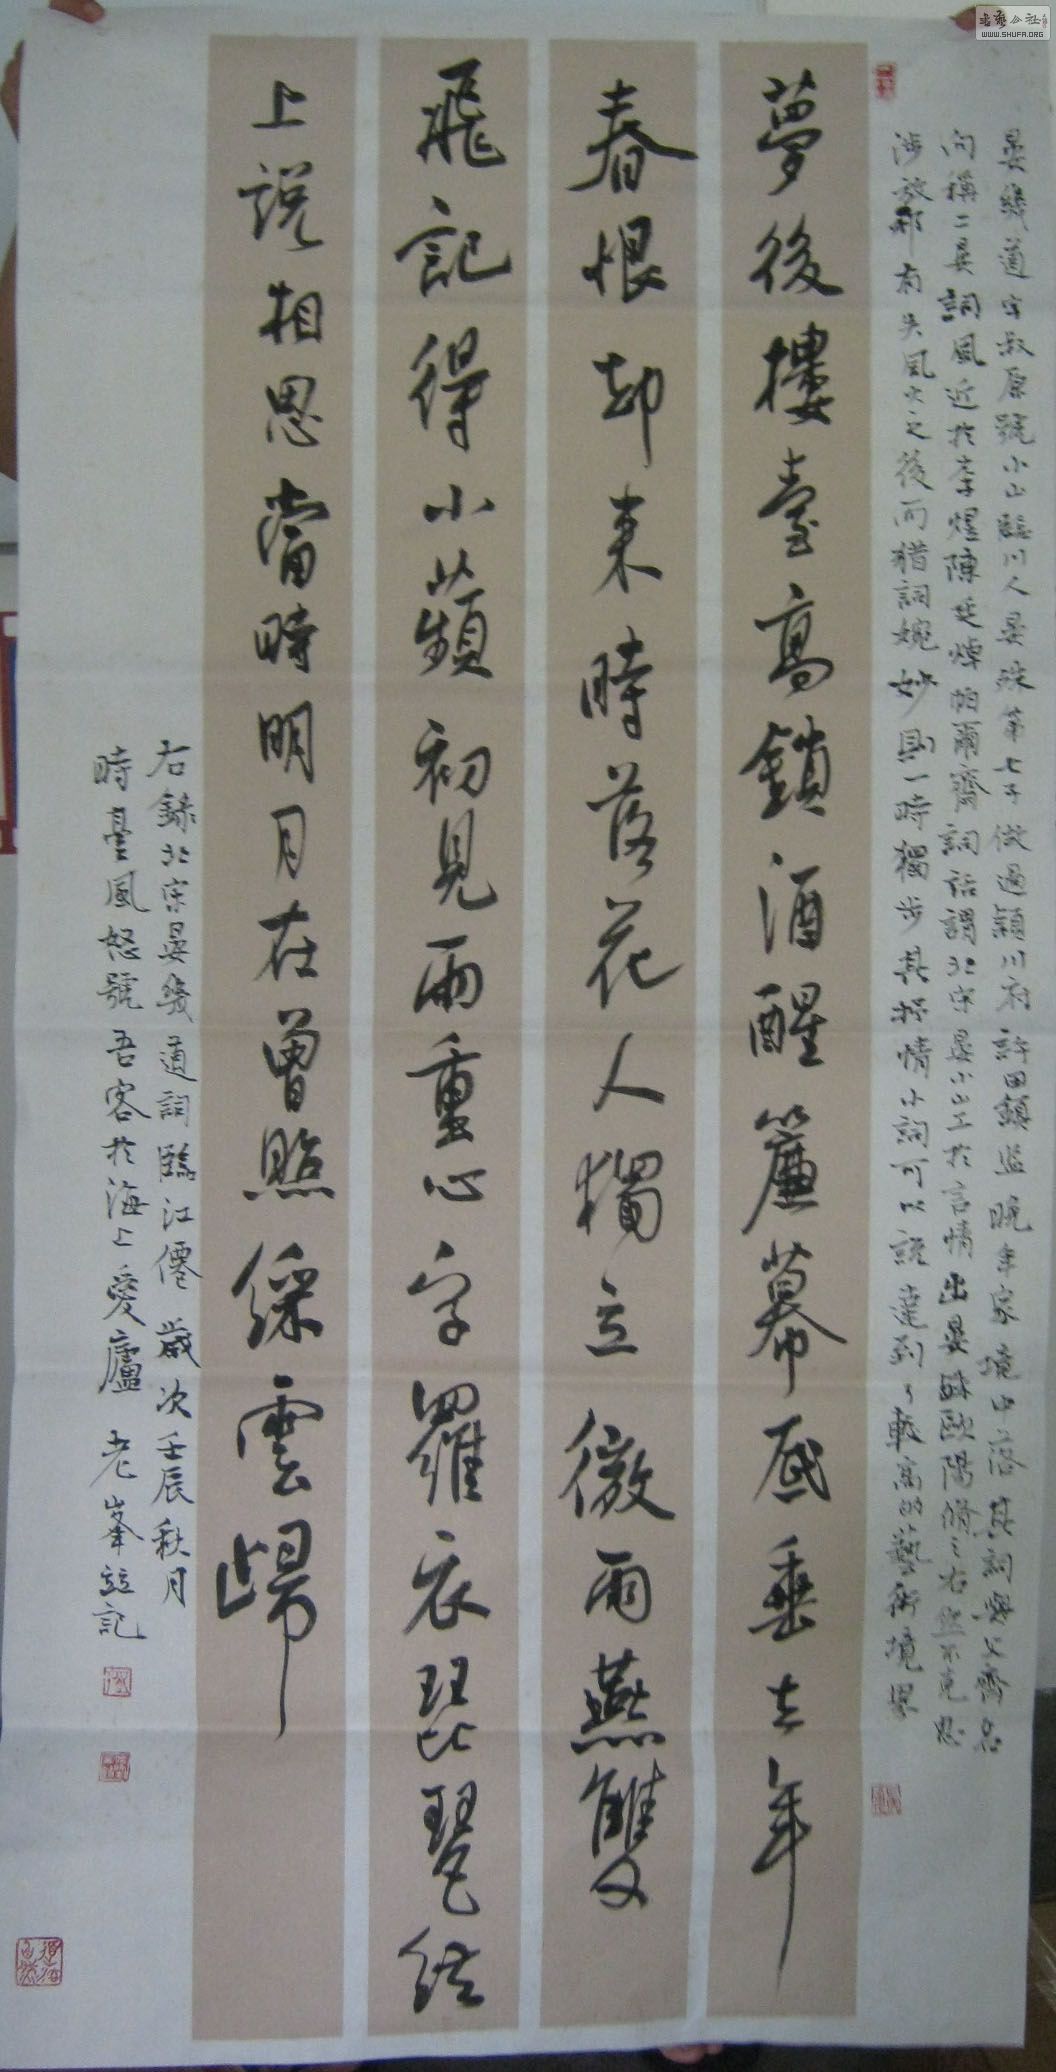 晏幾道字叔原號小山臨川人晏殊第七子做過潁川府許田鎮監晚年家境中落其詞與父齊名
向稱二晏詞風近於李煜陳廷焯帕爾齋詞話謂北宋晏小山工於言情出晏殊歐陽脩之右然不免思
涉於邪有失風人之後而措詞婉妙則一時獨步其抒情小詞可以說達到了較高的藝術境界
夢後樓臺高鎖酒醒簾幕底垂去年
春恨却來時落花人獨立微雨燕雙
飛記得小蘋初見兩重心字羅衣琵琶弦
上說相思當時明月在曾照綵雲歸
右錄北宋晏幾道詞臨江僊歲次壬辰秋月
時臺風怒號吾客於海上愛廬老峯竝記
WWW.SHUFA.ORG